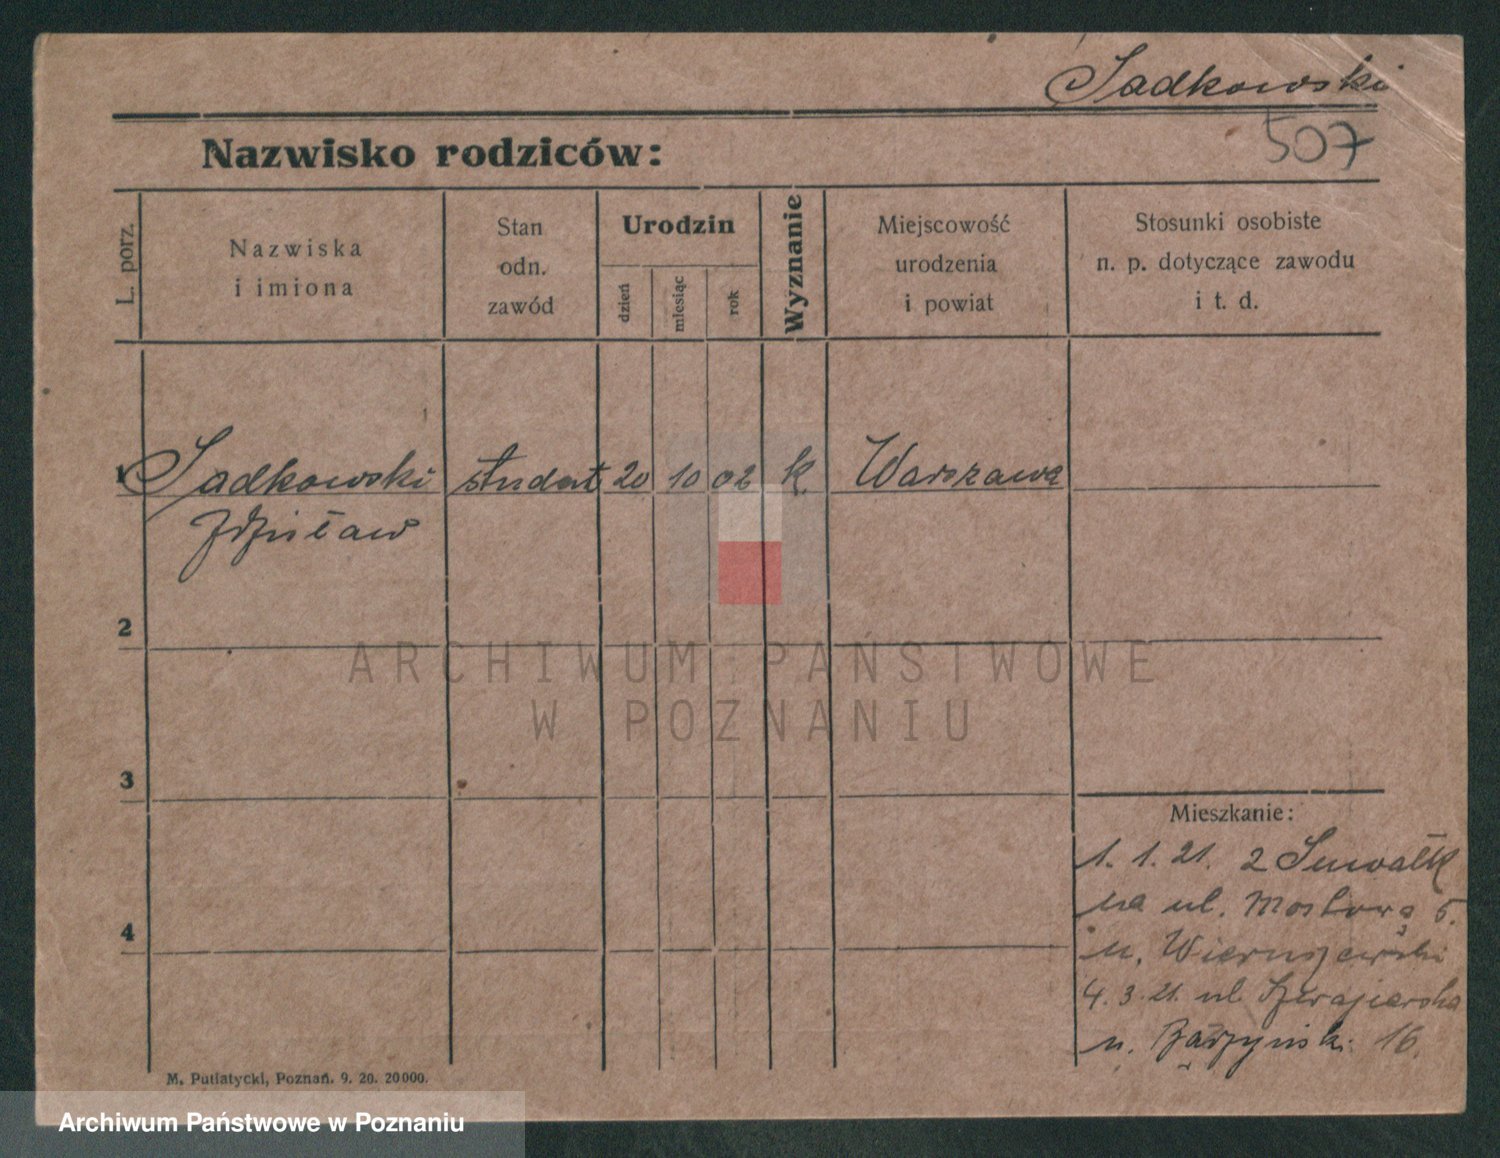 Sadkowski
507
Nazwisko rodziców:
L. porz.
Nazwiska
i imiona
Stan
odn.
zawód
Urodzin
dzień
miesiąc
rok
Wyznanie
Miejscowość
urodzenia
i powiat
Stosunki osobiste
n. p. dotyczące zawodu
i t. d.
1 Sadkowski student 20 10 02 k. Warszawa
Zdzisław
2
3
4
ARCHIWUM PAŃSTWOWE
W POZNANIU
Mieszkanie:
1. 1. 21. z Suwałk
na ul. Mostowa 5.
u. Wieruszewski
4. 3. 21. ul.
u. 16.
M. Putiatycki, Poznań. 9. 20. 20000.
Archiwum Państwowe w Poznaniu